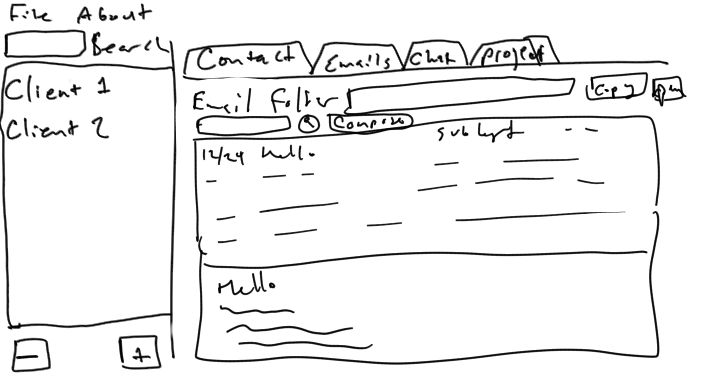 File About
Search
Client 1
Client 2
Contact Emails Chat Project
Email Folder Copy Open
Compose
12/24 Hello Subject
Hello
- +